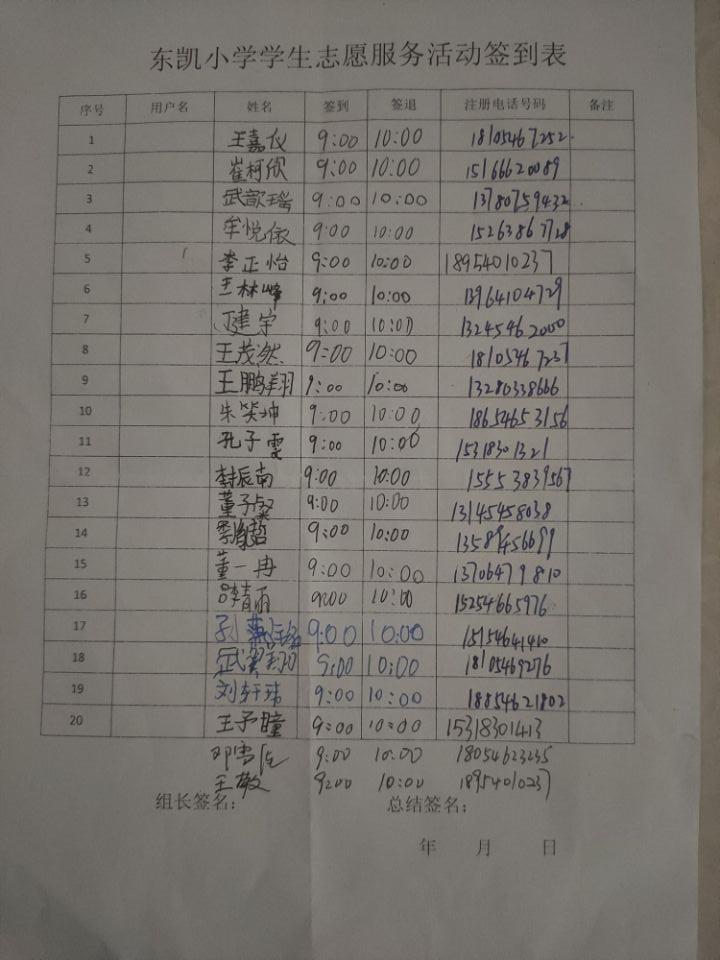 东凯小学学生志愿服务活动签到表
序号 用户名 姓名 签到 签退 注册电话号码 备注
1 王嘉仪 9:00 10:00 18105467252
2 崔柯欣 9:00 10:00 15166620089
3 武歆瑶 9:00 10:00 13780759432
4 牟悦依 9:00 10:00 15263867728
5 李正怡 9:00 10:00 18954010237
6 王林峰 9:00 10:00 13964104729
7 建宇 9:00 10:00 13245462000
8 王茂然 9:00 10:00 18105467237
9 王鹏翔 9:00 10:00 13280338666
10 朱笑坤 9:00 10:00 18654653156
11 孔子雯 9:00 10:00 15318301321
12 李辰南 9:00 10:00 15553839567
13 董子粲 9:00 10:00 13145458038
14 9:00 10:00 13589456699
15 董一冉 9:00 10:00 13706479810
16 9:00 10:00 15254665976
17 孙 9:00 10:00 15154641410
18 武 9:00 10:00 18105469276
19 刘轩玮 9:00 10:00 18854621802
20 王予瞳 9:00 10:00 15318301413
邓 9:00 10:00 18054623235
王敬 9:00 10:00 18954010237
组长签名： 总结签名：
年 月 日